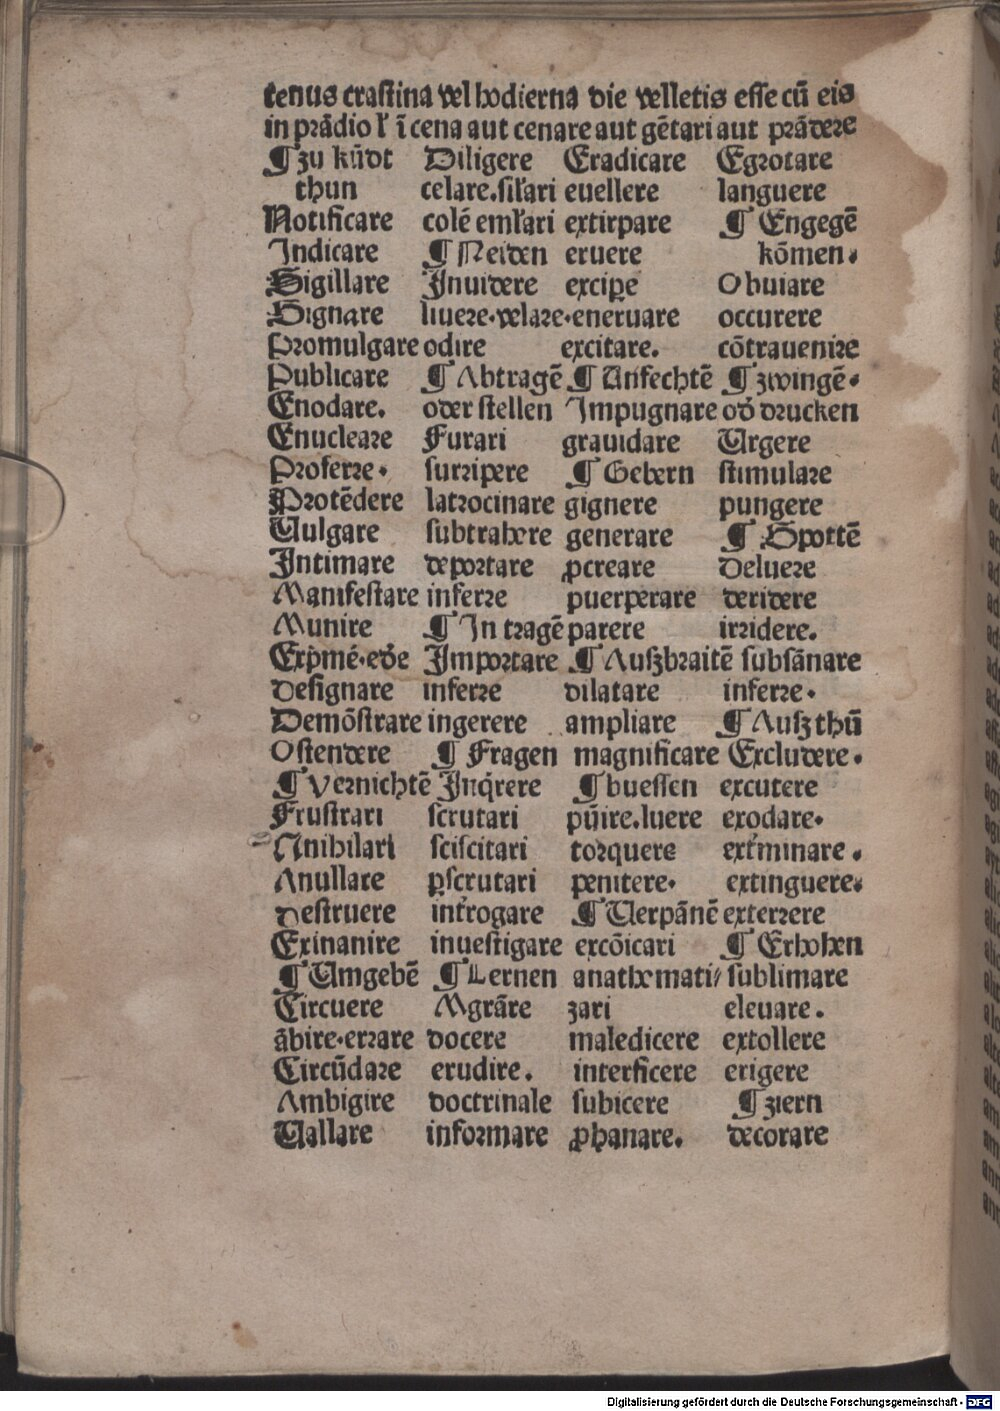 tenus crastina vel hodierna die velletis esse cū eis
in prādio l' ī cena aut cenare aut gētari aut prādere
¶ zu kūdt
thun
Notificare
Indicare
Sigillare
Signare
Promulgare
Publicare
Enodare.
Enucleare
Proferre.
Protēdere
Vulgare
Intimare
Manifestare
Munire
Designare
Demōstrare
Ostendere
¶ Vernichtē
Frustrari
Anihilari
Anullare
Destruere
Exinanire
¶ Umgebē
Circuere
ābire.errare
Circūdare
Ambigire
Vallare
Diligere
celare.sil'ari
colē eml'ari
¶ Neiden
Inuidere
liuere.velare.
odire
¶ Abtragē
oder stellen
Furari
surripere
latrocinare
subtrahere
deportare
inferre
¶ In tragē
Importare
inferre
ingerere
¶ Fragen
Inq̄rere
scrutari
sciscitari
p̱scrutari
int'rogare
inuestigare
¶ Lernen
Mgrāre
docere
erudire.
doctrinale
informare
Eradicare
euellere
extirpare
eruere
excipe
eneruare
excitare.
¶ Anfechtē
Impugnare
grauidare
¶ Gebern
gignere
generare
p̱creare
puerperare
parere
¶ Auszbraitē
dilatare
ampliare
magnificare
¶ buessen
pūire.luere
torquere
penitere.
¶ Verpānē
excōicari
anathemati/
zari
maledicere
interficere
subicere
p̱hanare.
Egrotare
languere
¶ Engegē
kōmen.
Obuiare
occurere
cōtrauenire
¶ zwingē.
od' drucken
Urgere
stimulare
pungere
¶ Spottē
Deluere
deridere
irridere.
subsānare
inferre.
¶ Ausz thū
Excludere.
excutere
exodare.
ext'minare.
extinguere.
exterrere
¶ Erhohen
sublimare
eleuare.
extollere
erigere
¶ ziern
decorare
Digitalisierung gefördert durch die Deutsche Forschungsgemeinschaft - DFG